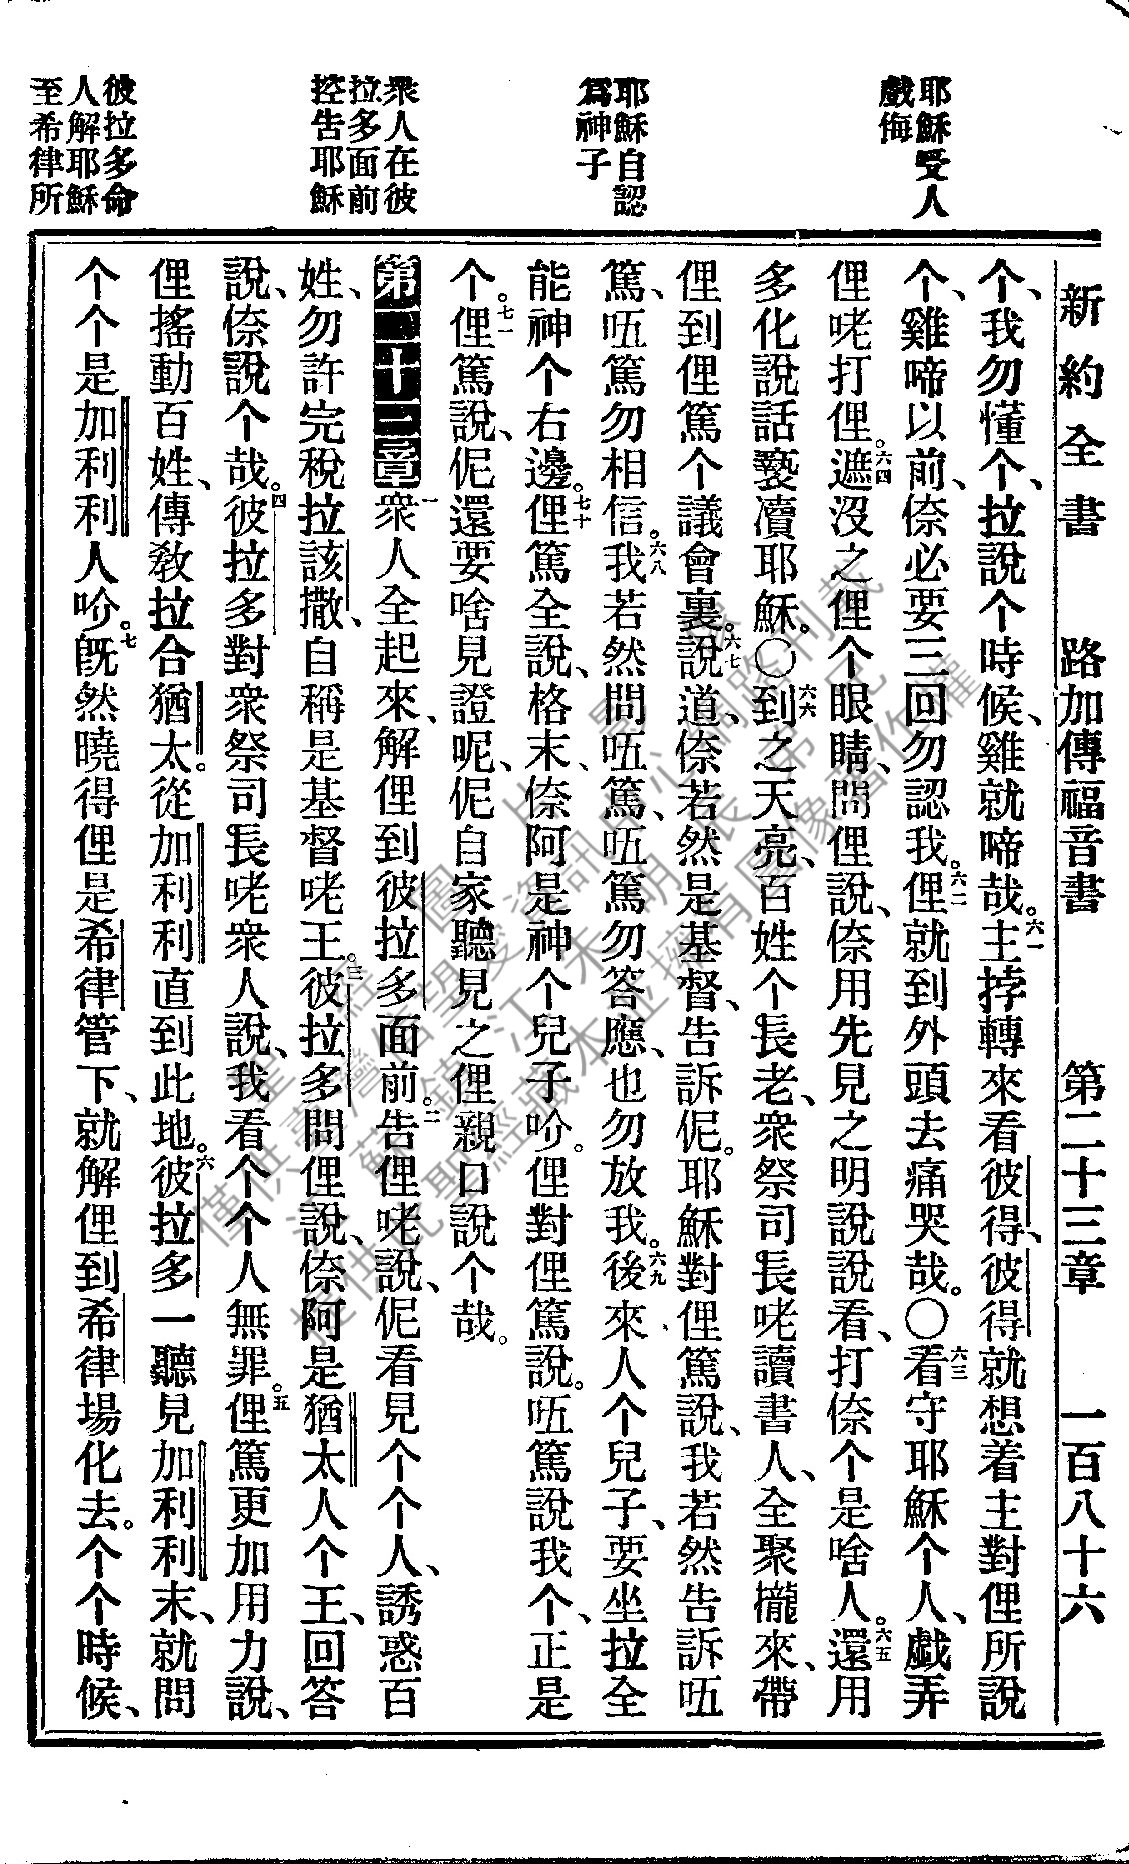 新約全書 路加傳福音書 第二十三章 一百八十六
耶穌受人
戲侮
耶穌自認
爲神子
衆人在彼
拉多面前
控告耶穌
彼拉多命
人解耶穌
至希律所
个、我勿懂个、拉說个時候、雞就啼哉。六一主挬轉來看彼得、彼得就想着主對俚所說
个、雞啼以前、倷必要三回勿認我。六二俚就到外頭去痛哭哉。〇六三看守耶穌个人、戲弄
俚咾打俚。六四遮沒之俚个眼睛、問俚說、倷用先見之明說說看、打倷个是啥人。六五還用
多化說話褻瀆耶穌。〇六六到之天亮、百姓个長老、衆祭司長咾讀書人、全聚攏來、帶
俚到俚篤个議會裏。六七說道、倷若然是基督、告訴伲。耶穌對俚篤說、我若然告訴㕶
篤、㕶篤勿相信。六八我若然問㕶篤、㕶篤勿答應、也勿放我。六九後來人个兒子、要坐拉全
能神个右邊。七十俚篤全說、格末、倷阿是神个兒子吤。俚對俚篤說。㕶篤說我个、正是
个。七一俚篤說、伲還要啥見證呢、伲自家聽見之俚親口說个哉。
第二十三章 一衆人全起來、解俚到彼拉多面前。二告俚咾說、伲看見个个人、誘惑百
姓、勿許完稅拉該撒、自稱是基督咾王。三彼拉多問俚說、倷阿是猶太人个王、回答
說、倷說个哉。四彼拉多對衆祭司長咾衆人說、我看个个人無罪。五俚篤更加用力說、
俚搖動百姓、傳敎拉合猶太。從加利利直到此地。六彼拉多一聽見加利利末、就問
个个是加利利人吤。七旣然曉得俚是希律管下、就解俚到希律場化去。个个時候、
僅供臺灣信望愛資訊中心網路刊載